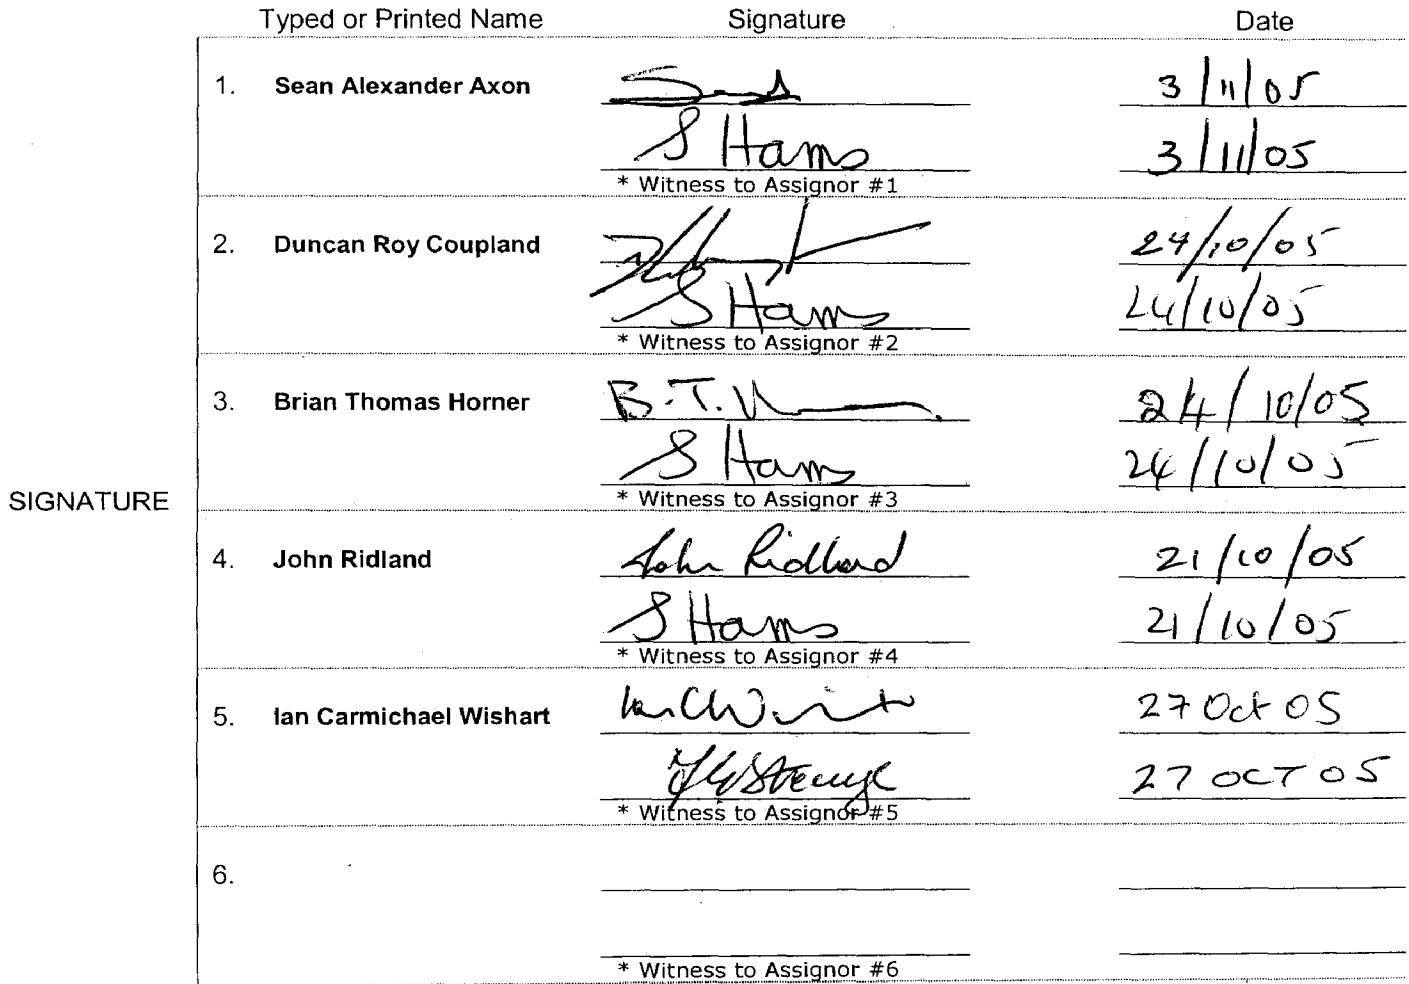 Typed or Printed Name Signature Date
1. Sean Alexander Axon 3/11/05
S Hams 3/11/05
* Witness to Assignor #1
2. Duncan Roy Coupland 24/10/05
S Hams 24/10/05
* Witness to Assignor #2
3. Brian Thomas Horner B.T. 24/10/05
S Hams 24/10/05
* Witness to Assignor #3
SIGNATURE
4. John Ridland John Ridland 21/10/05
S Hams 21/10/05
* Witness to Assignor #4
5. Ian Carmichael Wishart 27 Oct 05
27 OCT 05
* Witness to Assignor #5
6.
* Witness to Assignor #6